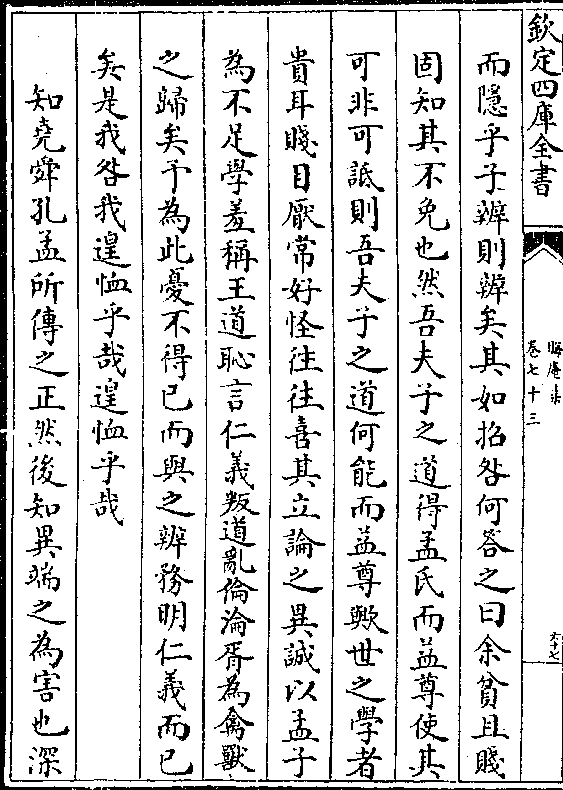 欽定四庫全書
晦庵集
卷七十三
六十七
而隱乎子辨則辨矣其如招咎何答之曰余貧且賤
固知其不免也然吾夫子之道得孟氏而益尊使其
可非可詆則吾夫子之道何能而益尊歟世之學者
貴耳賤目厭常好怪往往喜其立論之異誠以孟子
為不足學羞稱王道恥言仁義叛道亂倫淪胥為禽獸
之歸矣予為此憂不得已而與之辨務明仁義而已
矣是我咎我遑恤乎哉遑恤乎哉
知堯舜孔孟所傳之正然後知異端之為害也深